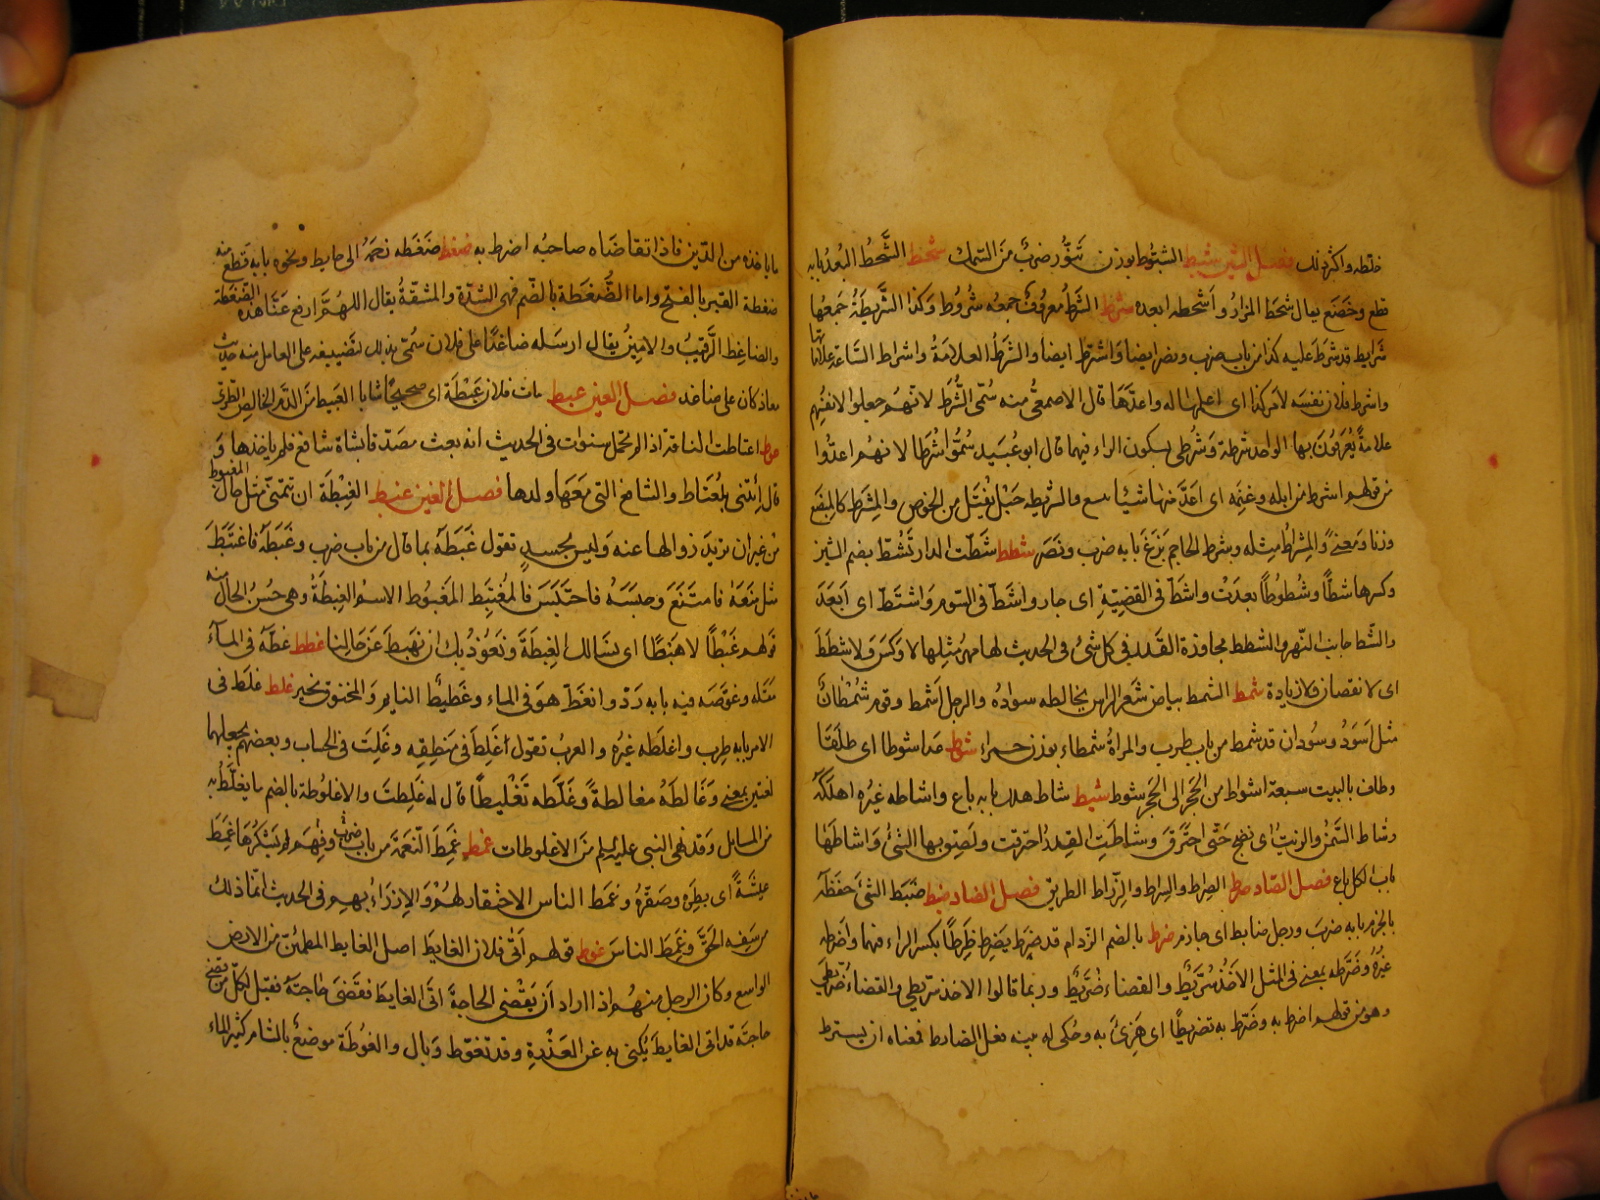 خلطه واكثر ذلك فصل الشين شبط الشبوط بوزن تَنُّور ضربٌ من السمك شحط الشَّحطُ البُعدُ بابه
قطع وخَضَعَ يقال شحَط المزارُ وأشحطه ابعده شرط الشرطُ معروفٌ جمعه شُروُط وكذا الشَّريطَةُ جَمعُها
شَرايط قد شرَط عليه كذا من باب ضرب ونصر ايضا واشترط ايضا والشرَطُ العلامةُ واشراط الساعة علاماتها
واشرط فلان نفسَه لامر كذا اى اعلمها له واعدَّها قال الاصمعىُّ منه سُمّى الشُّرَط لانهم جعلوا لانفسهم
علامةً يُعرَفُونَ بها الواحد شرطة وَشُرْطى بسكون الراء فيهما قال ابو عُبَيد سُمُّوا شُرَطا لانهم اعدُّوا
من قولهم اشرط من ابله وغنمه اى اعَدَّ منها شيئا للبيع والشريطه حَبْل يُفتَل من الخوص والمِشرَط كالمِبضَع
وزنا ومعنىً والمِشراطُ مثله وشرط الحاجم بَزَغَ بابه ضرب ونَصَر شطط شَطّت الدار تَشُطّ بضم الشين
وكسرها شَطًّا وشُطوُطًا بعدَتْ واشَطّ فى القضيّةِ اى جار واشَطّ فى السَّوم وَاشتَطّ اى اَبعَدَ
والشّط جانب النّهر والشطط مجاوزة القَدرِ فى كل شئ وفى الحديث لها مهرُ مثلِها لا وَكَسَ ولا شطَطَ
اى لا نقصان ولا زيادة شمط الشمط بياض شَعر الراس يخالطه سوادُه والرجل اَشمَط وقوم شُمْطانٌ
مثل اَسوَدُ وسُودان قد شمط من باب طرب والمراةُ شمطاء بوزن حمراء شوط عدا شوطا اى طلَقًا
وطاف بالبيت سبعة اشواط من الحَجَر الى الحَجَر شوط شيط شاط هلك بابه باع واشاطه غيره اهلكَهُ
وشاط السَّمنُ والزيتُ اى نضج حَتّى احترَقَ وشاطَت القِدرُ احترقت ولصق بها الشئُ واَشاطَها
باب الكل باع فصل الصّاد صرط الصِراط والسِراط والزِّراط الطريق فصل الضاد ضبط ضَبَط الشئَ حَفظَهُ
بالحزم بابه ضرب ورجل ضابط اى حازم ضرط بالضم الرُّدام قد ضرَط يَضرِط ضَرِطًا بكسر الراء فيهما واَضرَطه
غيرُه وضَرَّطه بمعنى فى المثل الاخذُ سُرَّيْطٌ والقضاءُ ضُرَّيْطٌ وربما قالوا الاخذ سُرَّيطى والقضاءُ ضُرَّيطى
وهو من قولهم اضرط به وضَرّط به تضريطًا اى هَزِئَ به وحُكى له بفيه فعل الضارط فمعناه ان يسترط
ما ياخذه من الدَّين فاذا تقاضَاه صاحبُه اضرط به ضغط ضَغَطه زحَمهُ الى حايط ونحوه بابه قطَع منه
ضغطة القبر بالفتح واما الضُّغطة بالضم فهى الشدّة والمشقّةُ يقال اللهمَّ ارفع عَنّا هذه الضُّغطَة
والضاغِط الرَّقيبُ والامينُ يقال ارسَله ضاغطًا على فلان سُمّى بذلك لتَضييقه على العامل منه حديث
معاذ كان علىّ ضاغط فصل العين عبط مات فلان عَبْطَة اى صحيحًا شابا العَبيط من الدَّم الخالص الطرىّ
عوط اعتاطت الناقة اذا لم تحمل سنوات فى الحديث انه بعث مصَدّقا بشاة شافع فلم ياخذها وَ
قال اِئتنى بِمُعتَاط والشافع التى معَها ولدها فصل الغين غبط الغِبْطَة ان تتمنّى مثل حال المغبوط
من غير ان تريد زوالها عنه وليس بحسدٍ تقول غَبَطَهُ بما نال من باب ضرب وغبطَةً فاغتَبَطَ
مثل منَعهُ فامتَنَعَ وحبَسَهُ فاحتَبَسَ فالمُغتَبِط المَغبُوط الاسم الغِبطَةُ وهى حُسنُ الحال منه
قولهم غَبْطًا لا هَبْطًا اى نسَالك الغِبطَةَ ونَعُوذ بك ان نهبِطَ عَن حَالنا غطط غَطّهُ فى الماءِ
مَقَله وغوّصَه فيه بابه رَدّ وانغَطّ هوَ فى الماء وغَطيطُ النايم والمخنوق نخير غلط غلَط فى
الامر بابه طرب واغلَطه غيرُه والعربُ تقول غَلِط فى مَنطقِه وغَلِتَ فى الحساب وبعضُهم يجعلهما
لغتين بمعنى وَغَالَطَهُ مغالطةً وغَلَّطه تَغْليطًا قال له غَلِطتَ والاغلوُطة بالضم ما يغلَّطُ به
من المسائل وقد نهى النبى عليه السلم من الاغلوطات غمط غَمِطَ النّعمَة من باب ضرَب وفهِمَ لم يَشكُرها غمطَ
عيشَهُ اى بطِرَه وحقَّرَه وغمَطُ الناس الاحتقار لهُمْ والاِزرَاءُ بهم فى الحديث انّما ذلك
من سَفِه الحقَّ وغَمِطَ الناسَ غوط قولهم اَتَى فلان الغايط اصل الغايط المطمئن من الارض
الواسع وكان الرجل منهم اذا اراد اَن يَقْضى الحاجة اتَى الغايط فقَضَى حاجتَهُ فقيل لكلّ من قضى
حاجتَه قد اتى الغايط يُكنى به عن العَذْرة وقد تغَوّط وَبال والغُوطة موضعٌ بالشام كثير الماء